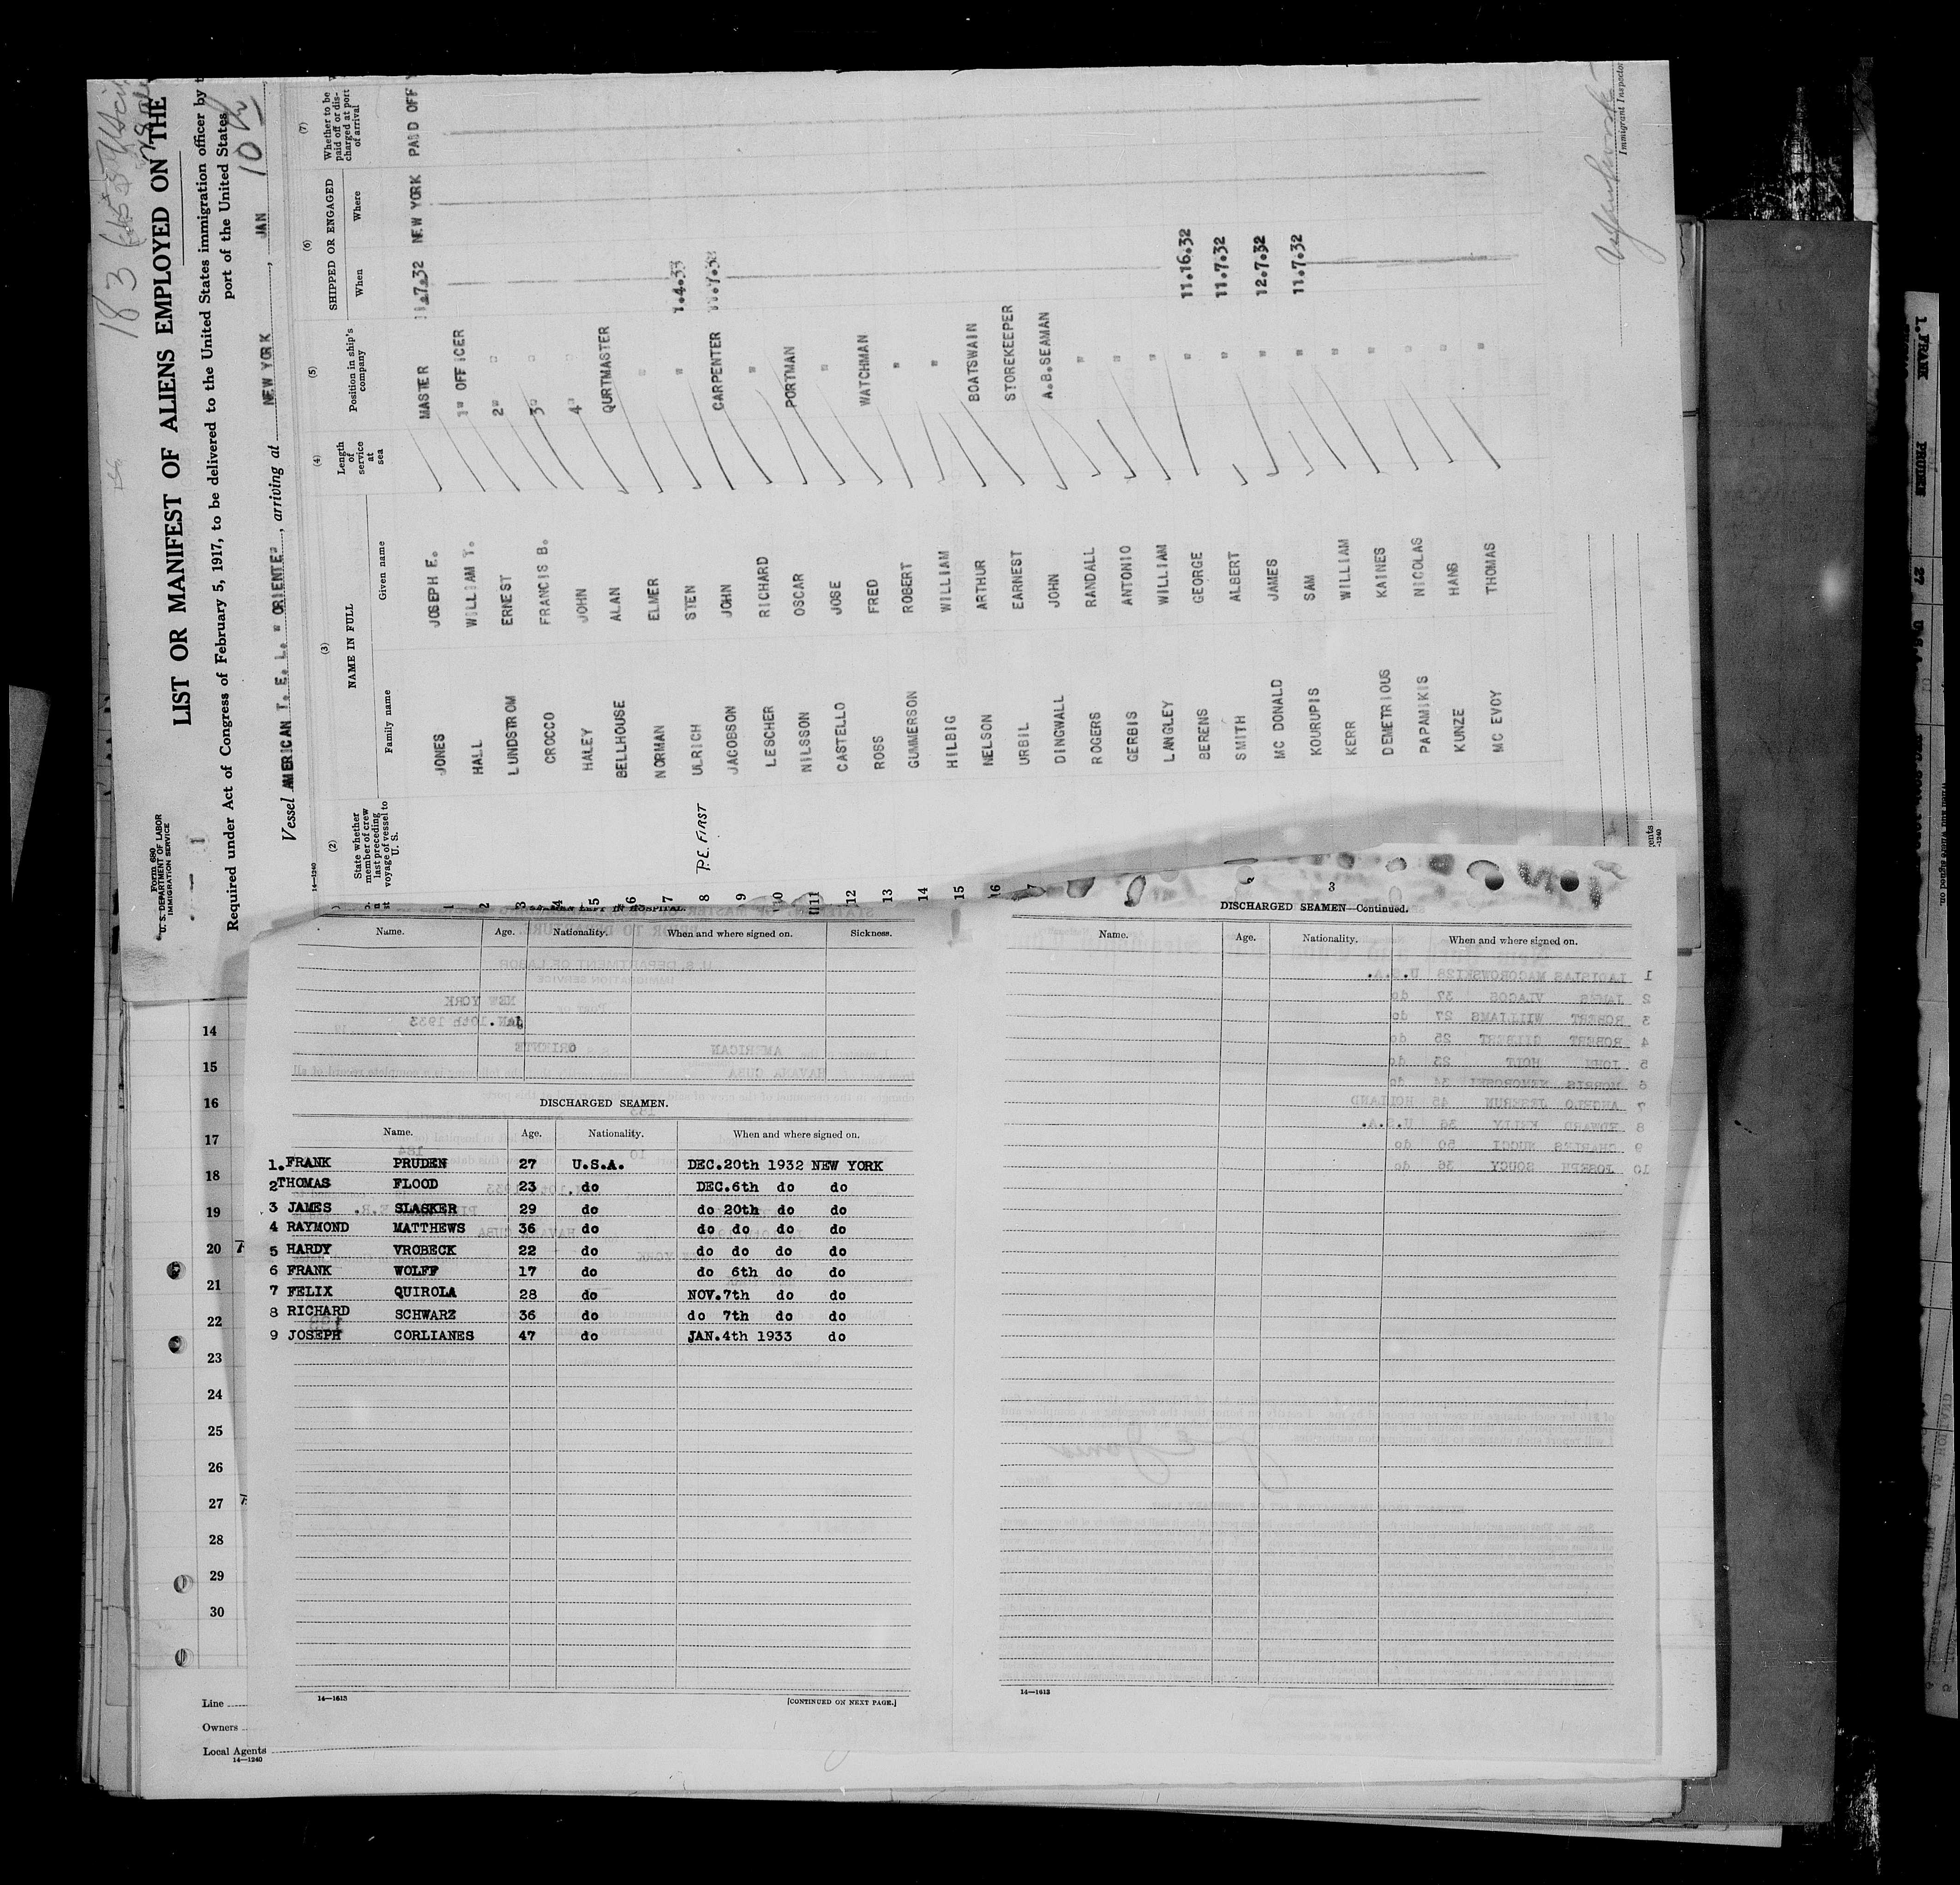 Form 680
U. S. DEPARTMENT OF LABOR
IMMIGRATION SERVICE
183
LIST OR MANIFEST OF ALIENS EMPLOYED ON THE
Required under Act of Congress of February 5, 1917, to be delivered to the United States immigration officer by
port of the United States
Vessel AMERICAN T. E. L. " ORIENTE", arriving at NEW YORK, JAN 10th
14—1240
(2) (3) (4) (5) (6) (7)
State whether member of crew last preceding voyage of vessel to U. S.
NAME IN FULL
Family name Given name
Length of service at sea
Position in ship's company
SHIPPED OR ENGAGED
When Where
Whether to be paid off or discharged at port of arrival
1 JONES JOSEPH E. MASTER 11.7.32 NEW YORK PAID OFF
2 HALL WILLIAM T. 1" OFFICER
3 LUNDSTROM ERNEST 2" "
4 CROCCO FRANCIS B. 3" "
5 HALEY JOHN 4" "
6 BELLHOUSE ALAN QURTMASTER
7 NORMAN ELMER "
8 P.E. FIRST ULRICH STEN " 1.4.33
9 JACOBSON JOHN CARPENTER 11.7.32
10 LESCHER RICHARD "
11 NILSSON OSCAR PORTMAN
12 CASTELLO JOSE "
13 ROSS FRED WATCHMAN
14 GUMMERSON ROBERT "
15 HILBIG WILLIAM "
16 NELSON ARTHUR BOATSWAIN
URBIL EARNEST STOREKEEPER
DINGWALL JOHN A.B.SEAMAN
ROGERS RANDALL "
GERBIS ANTONIO "
LANGLEY WILLIAM "
BERENS GEORGE " 11.16.32
SMITH ALBERT " 11.7.32
MC DONALD JAMES " 12.7.32
KOURUPIS SAM " 11.7.32
KERR WILLIAM "
DEMETRIOUS KAINES "
PAPAMIKIS NICOLAS "
KUNZE HANS "
MC EVOY THOMAS "
Immigrant Inspector
Name. Age. Nationality. When and where signed on. Sickness.
DISCHARGED SEAMEN.
Name. Age. Nationality. When and where signed on.
1. FRANK PRUDEN 27 U.S.A. DEC.20th 1932 NEW YORK
2 THOMAS FLOOD 23 do DEC.6th do do
3 JAMES SLASKER 29 do do 20th do do
4 RAYMOND MATTHEWS 36 do do do do do
5 HARDY VROBECK 22 do do do do do
6 FRANK WOLFF 17 do do 6th do do
7 FELIX QUIROLA 28 do NOV.7th do do
8 RICHARD SCHWARZ 36 do do 7th do do
9 JOSEPH CORLIANES 47 do JAN.4th 1933 do
14—1613
[CONTINUED ON NEXT PAGE.]
3
DISCHARGED SEAMEN—Continued.
Name. Age. Nationality. When and where signed on.
14—1613
14
15
16
17
18
19
20
21
22
23
24
25
26
27
28
29
30
Line
Owners
Local Agents
14—1240
1. FRANK PRUDEN 27